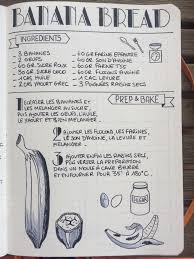 BANANA BREAD
INGREDIENTS
3 BANANES
2 OEUFS
60 GR. SUCRE ROUX
30 GR. SUCRE COCO
2 CAS. HUILE
2 CAS YAOURT GREC
60 GR FARINE EPEAUTRE
60 GR. SON D'AVOINE
60 GR. FARINE T55
60 GR. FLOCONS AVOINE
1 CAC LEVURE
3 POIGNÉES RAISINS SECS
PREP & BAKE
1 ECRASER LES BANANES ET
LES MELANGER AU SUCRE,
PUIS AJOUTER LES OEUFS, L'HUILE,
LE YAOURT ET BIEN MELANGER.
2 AJOUTER LES FLOCONS, LES FARINES,
LE SON D'AVOINE, LA LEVURE ET
MÉLANGER.
3 AJOUTER ENFIN LES RAISINS SECS,
PUIS VERSER LA PREPARATION
DANS UN MOULE A CAKE BEURRÉ
ET ENFOURNER POUR 35' A 180°C.
SUGAR